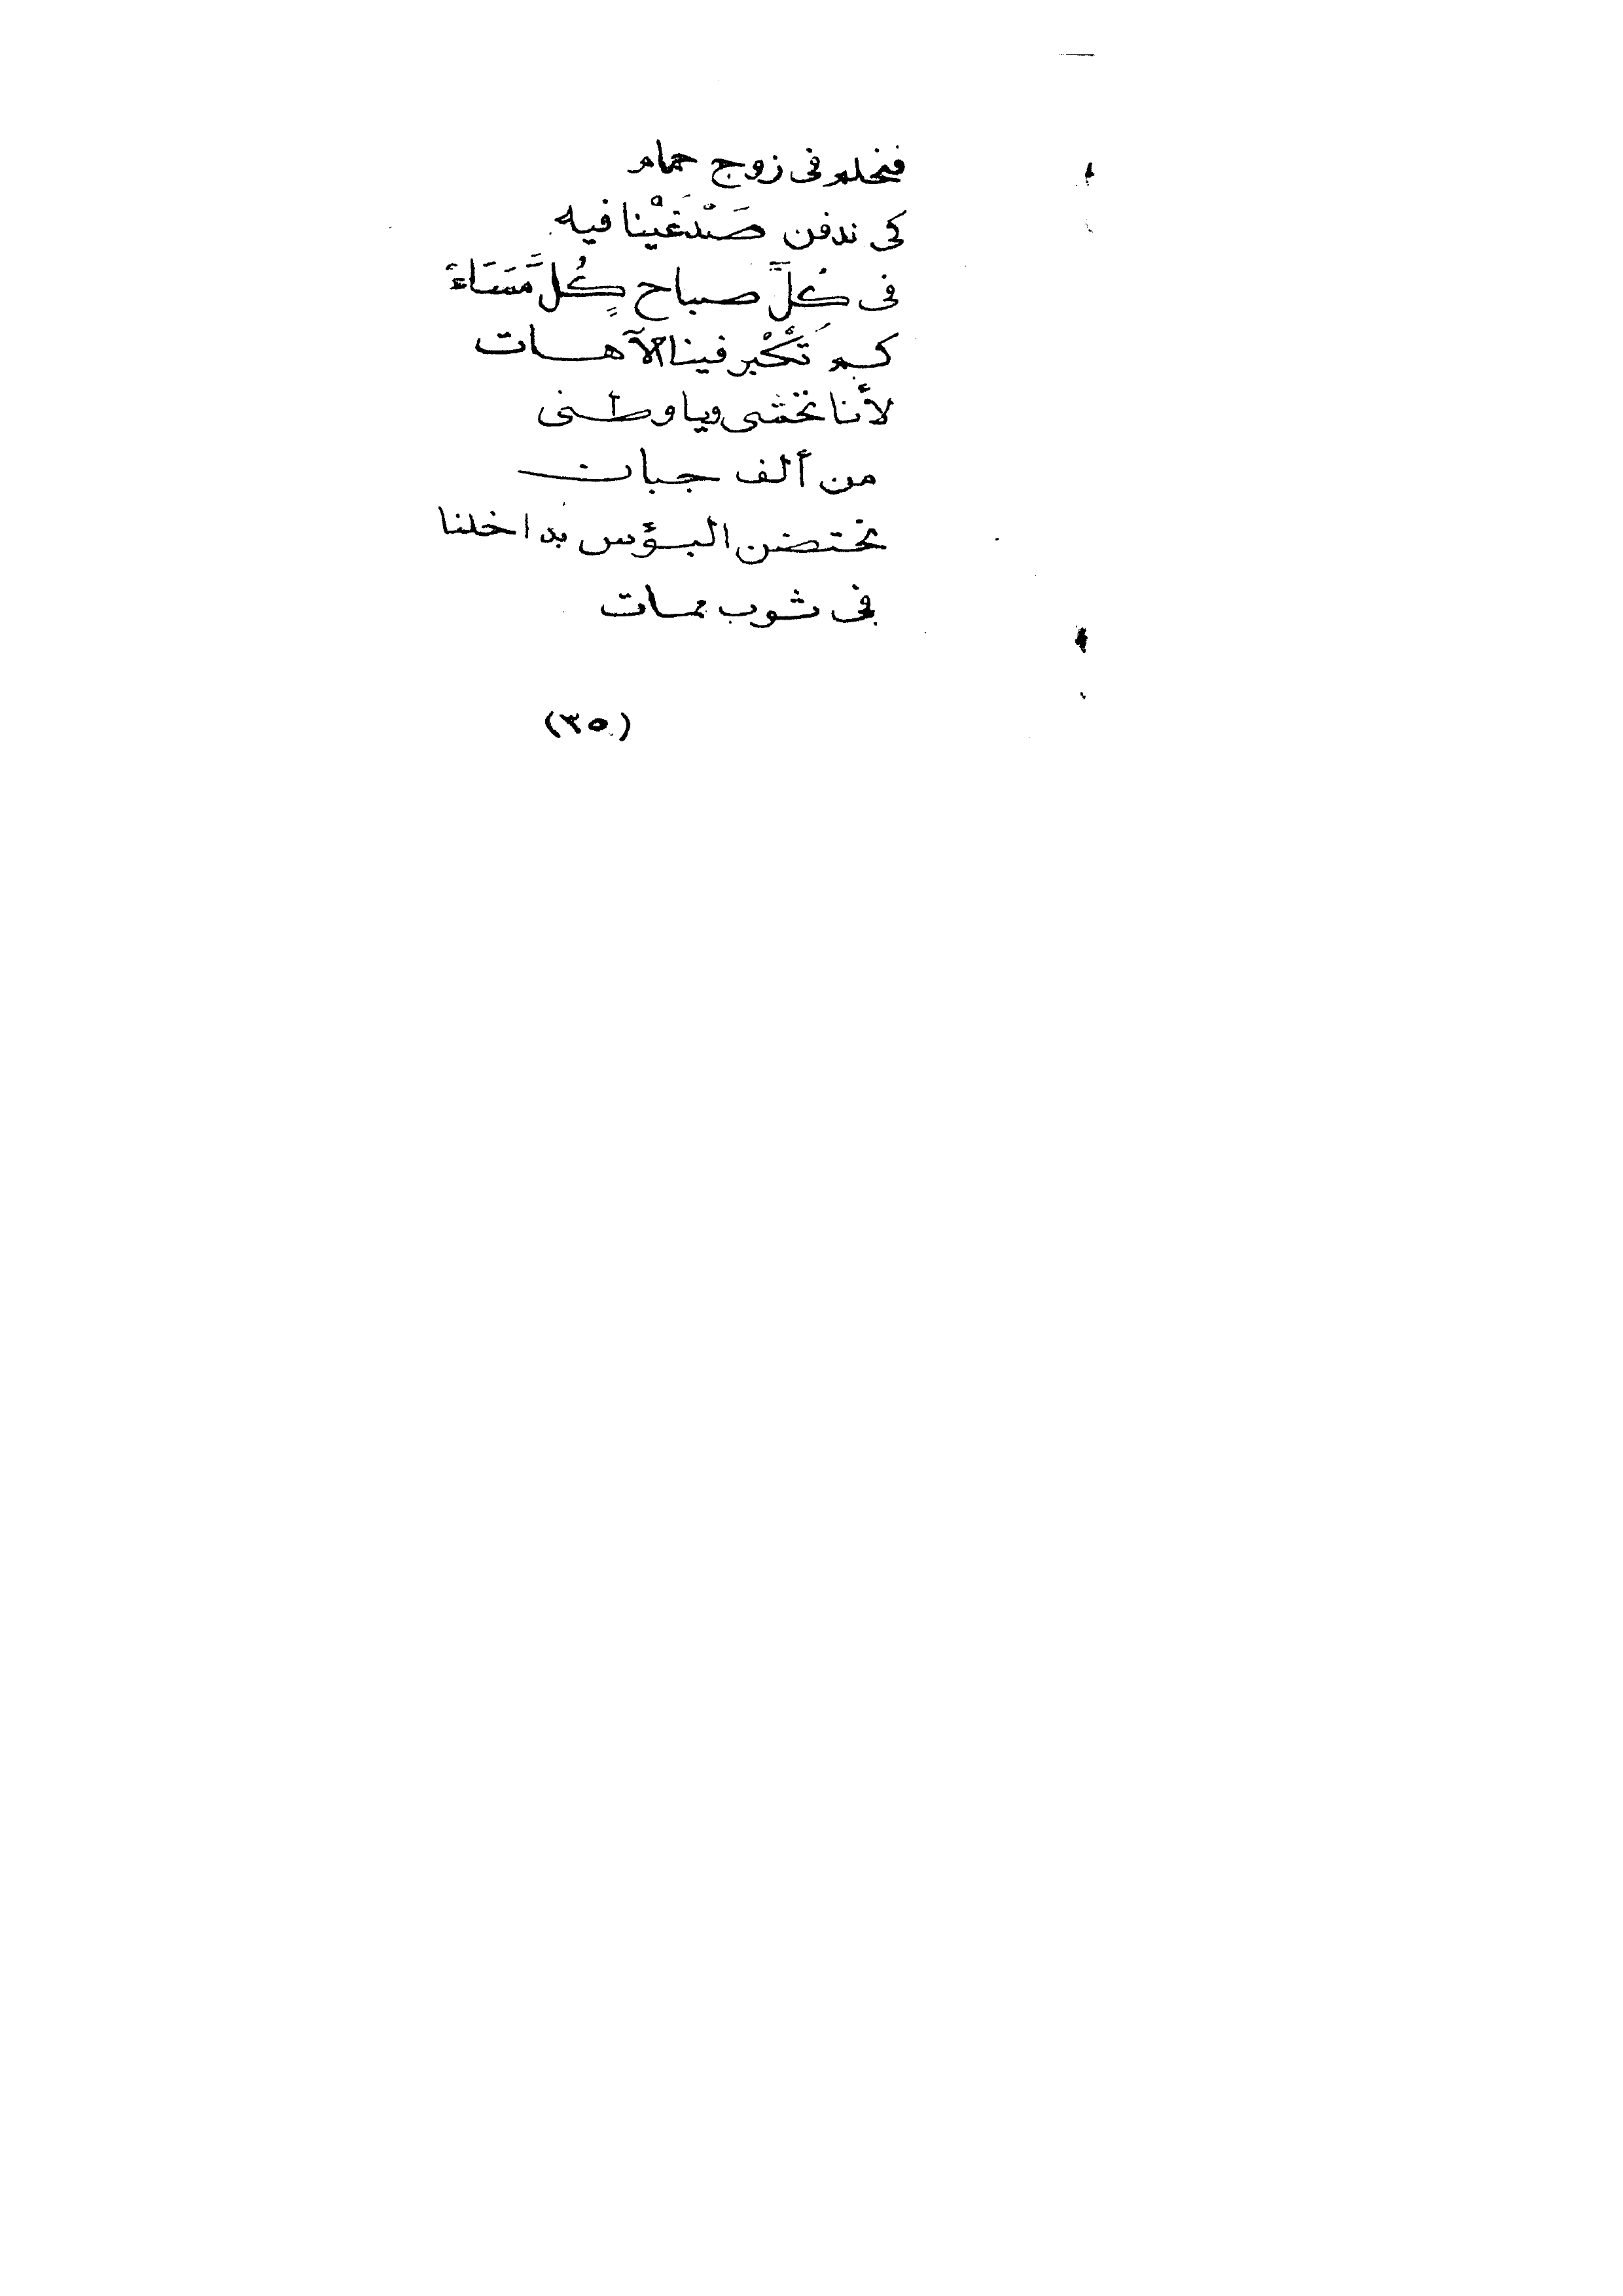 فنحلم فى زوج حمام
كى ندفن صَدْغَيْنا فيه
فى كُلِّ صباحٍ كُلَّ مَسَاءَ
كم تَكْبُر فينا الآهات
لأنا نخشى ويا وطنى
من ألف جبات
نحتضن البؤس بداخلنا
فى ثوب ممات
(٣٥)